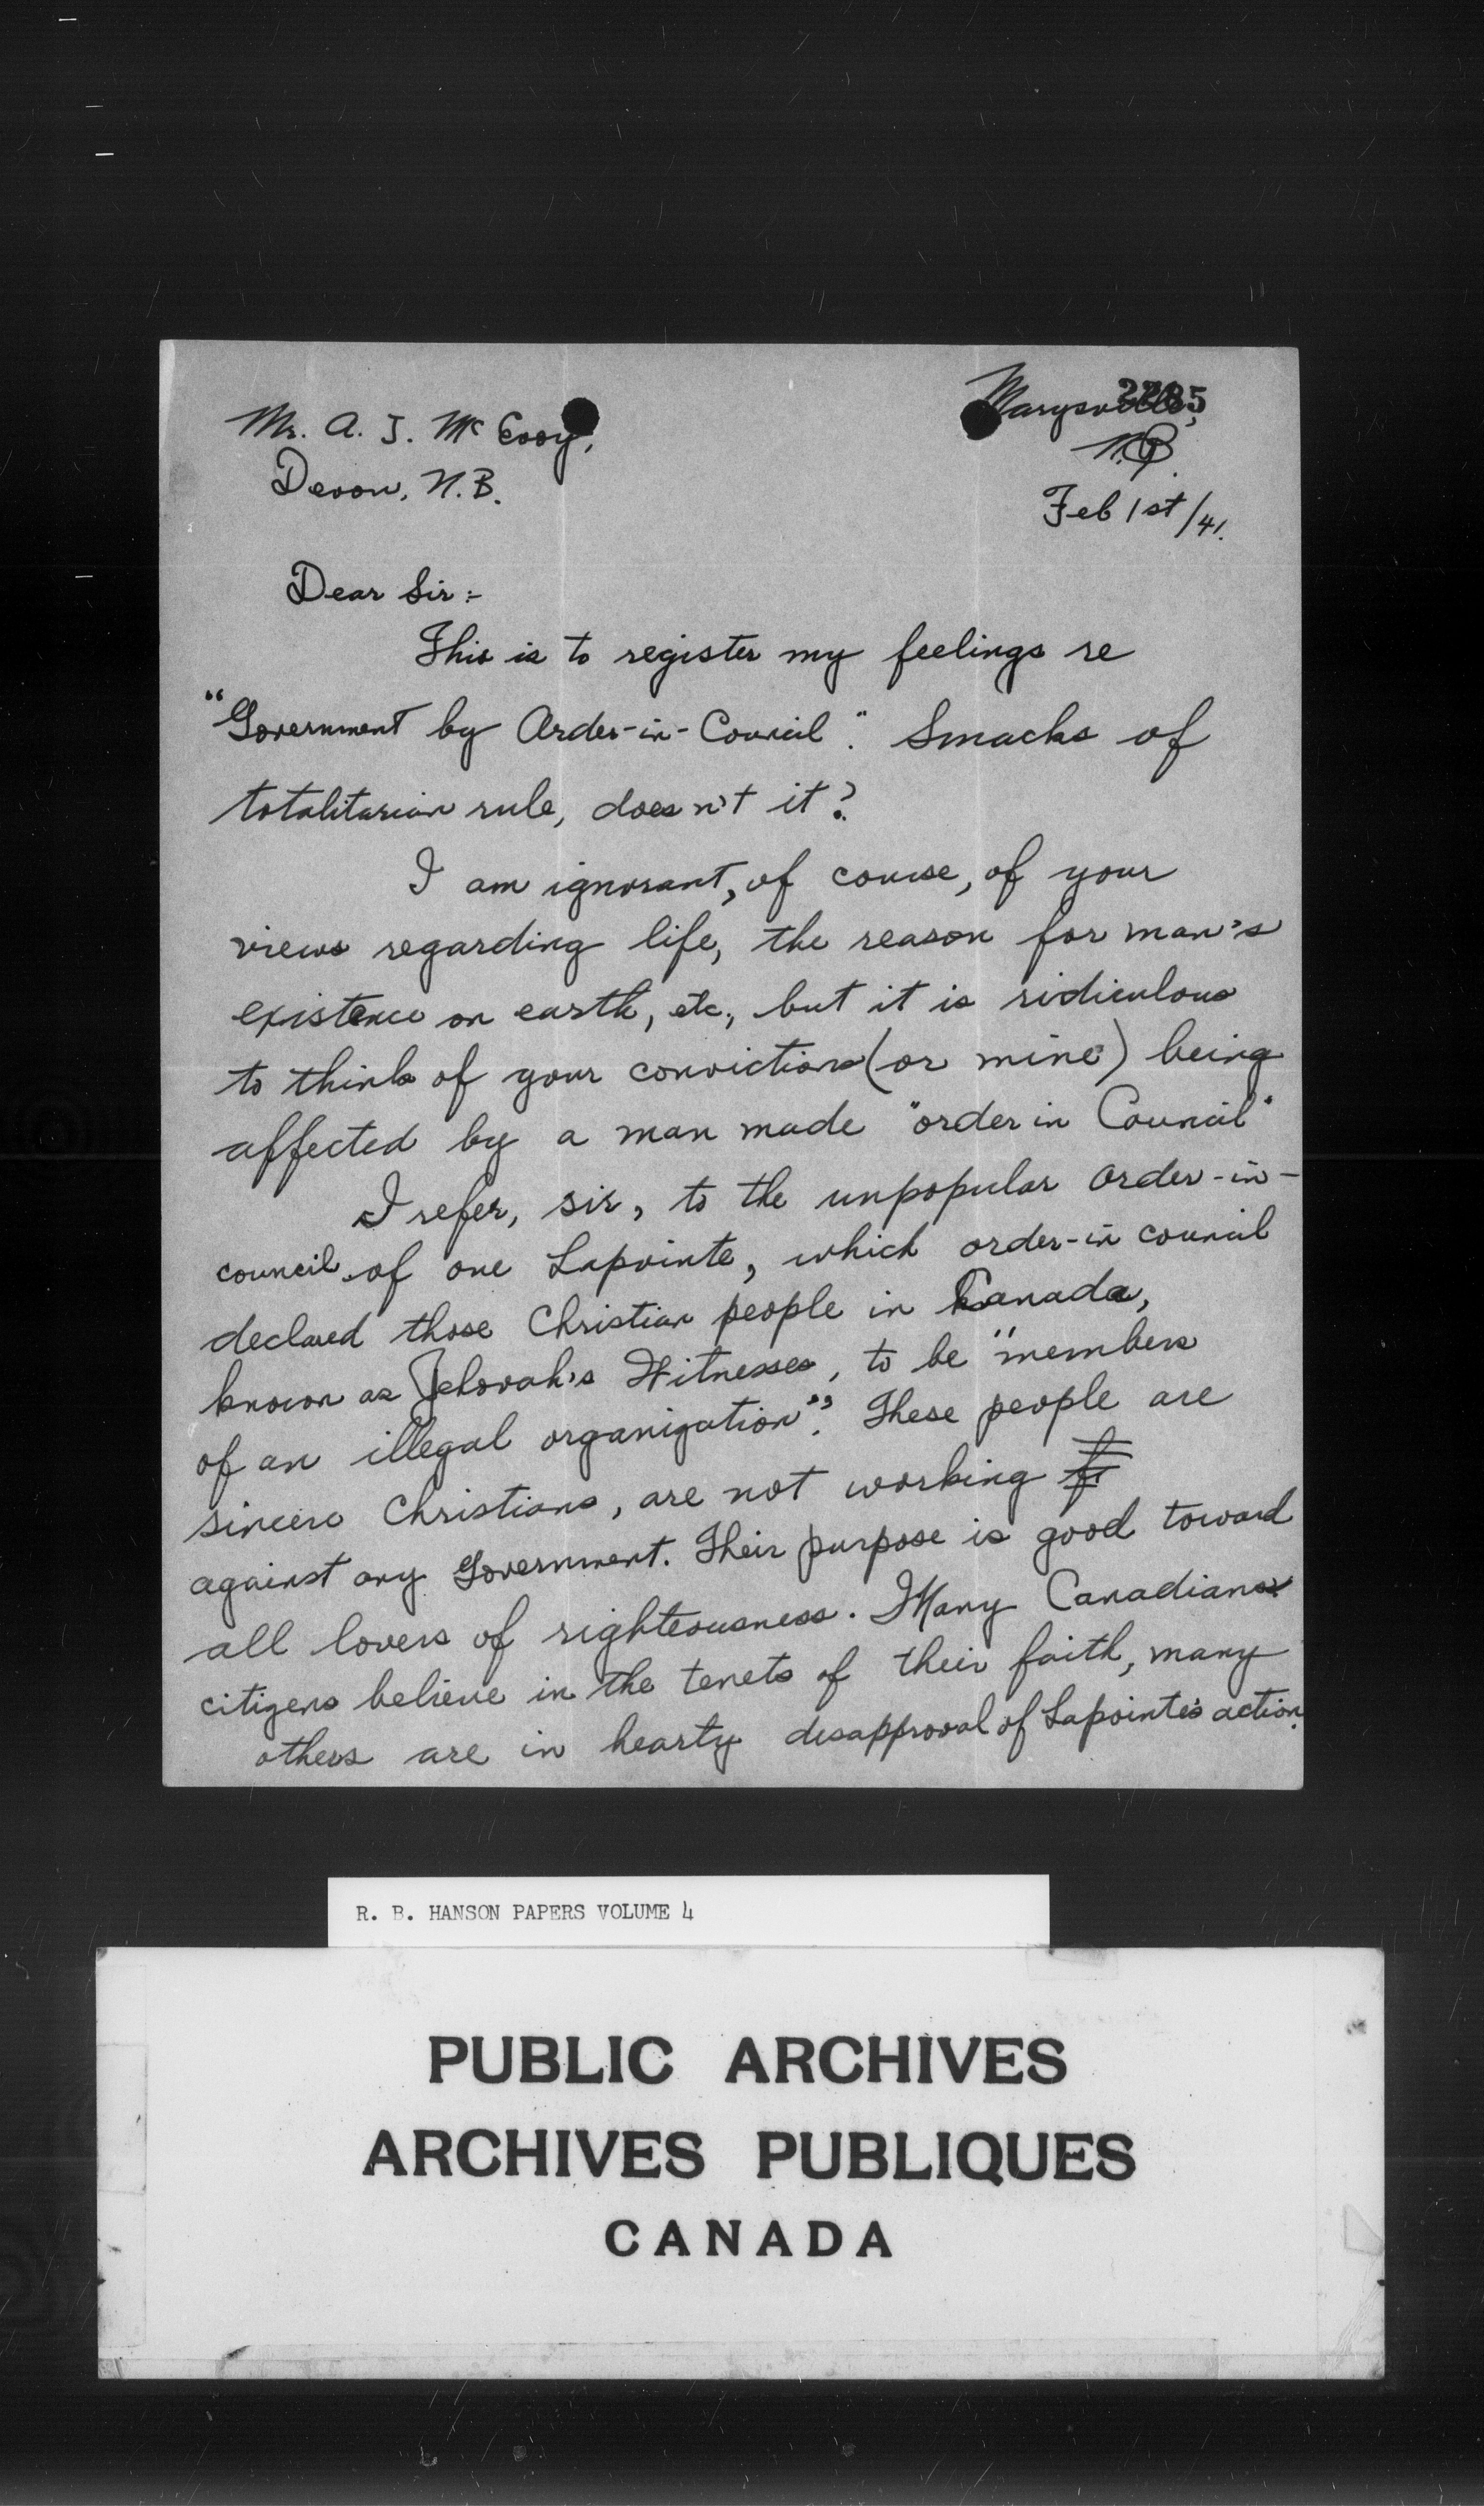 2285
Mr. A. J. McEvoy,
Devon, N.B.
Marysville,
N.B.
Feb 1st/41.
Dear Sir:-
This is to register my feelings re
"Government by Order-in-Council". Smacks of
totalitarian rule, doesn't it?
I am ignorant, of course, of your
views regarding life, the reason for man's
existence on earth, etc., but it is ridiculous
to think of your convictions (or mine) being
affected by a man made "order in Council"
I refer, sir, to the unpopular order-in-
council of one Lapointe, which order-in council
declared those Christian people in Canada,
known as Jehovah's Witnesses, to be "members
of an illegal organization". These people are
sincere Christians, are not working
against any Government. Their purpose is good toward
all lovers of righteousness. Many Canadian
citizens believe in the tenets of their faith, many
others are in hearty disapproval of Lapointe's action.
R. B. HANSON PAPERS VOLUME 4
PUBLIC ARCHIVES
ARCHIVES PUBLIQUES
CANADA